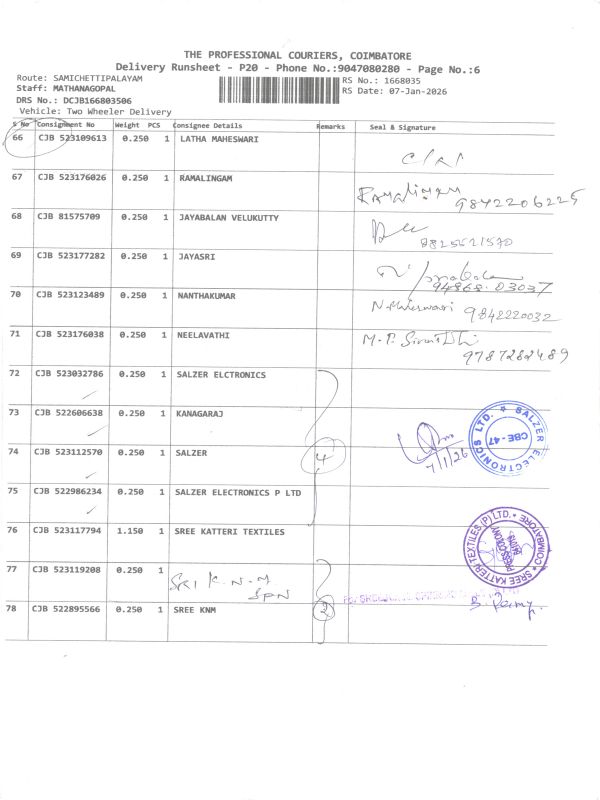 THE PROFESSIONAL COURIERS, COIMBATORE
Delivery Runsheet - P20 - Phone No.:9047080280 - Page No.:6
Route: SAMICHETTIPALAYAM
Staff: MATHANAGOPAL
DRS No.: DCJB166803506
Vehicle: Two Wheeler Delivery
RS No.: 1668035
RS Date: 07-Jan-2026
S No Consignment No Weight PCS Consignee Details Remarks Seal & Signature
66 CJB 523109613 0.250 1 LATHA MAHESWARI
67 CJB 523176026 0.250 1 RAMALINGAM Ramalingam 9842206225
68 CJB 81575709 0.250 1 JAYABALAN VELUKUTTY
69 CJB 523177282 0.250 1 JAYASRI 94868 03037
70 CJB 523123489 0.250 1 NANTHAKUMAR 9842220032
71 CJB 523176038 0.250 1 NEELAVATHI 9787282489
72 CJB 523032786 0.250 1 SALZER ELCTRONICS
73 CJB 522606638 0.250 1 KANAGARAJ
74 CJB 523112570 0.250 1 SALZER 4 7/1/26
SALZER ELECTRONICS LTD. CBE-47
75 CJB 522986234 0.250 1 SALZER ELECTRONICS P LTD
76 CJB 523117794 1.150 1 SREE KATTERI TEXTILES
SREE KATTERI TEXTILES (P) LTD. COIMBATORE
77 CJB 523119208 0.250 1 SRI K.N.M SPN
78 CJB 522895566 0.250 1 SREE KNM 2